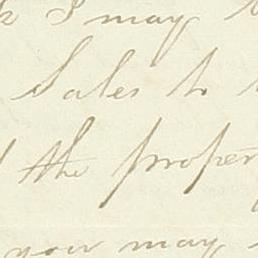 I may
Sales to
the proper
you may